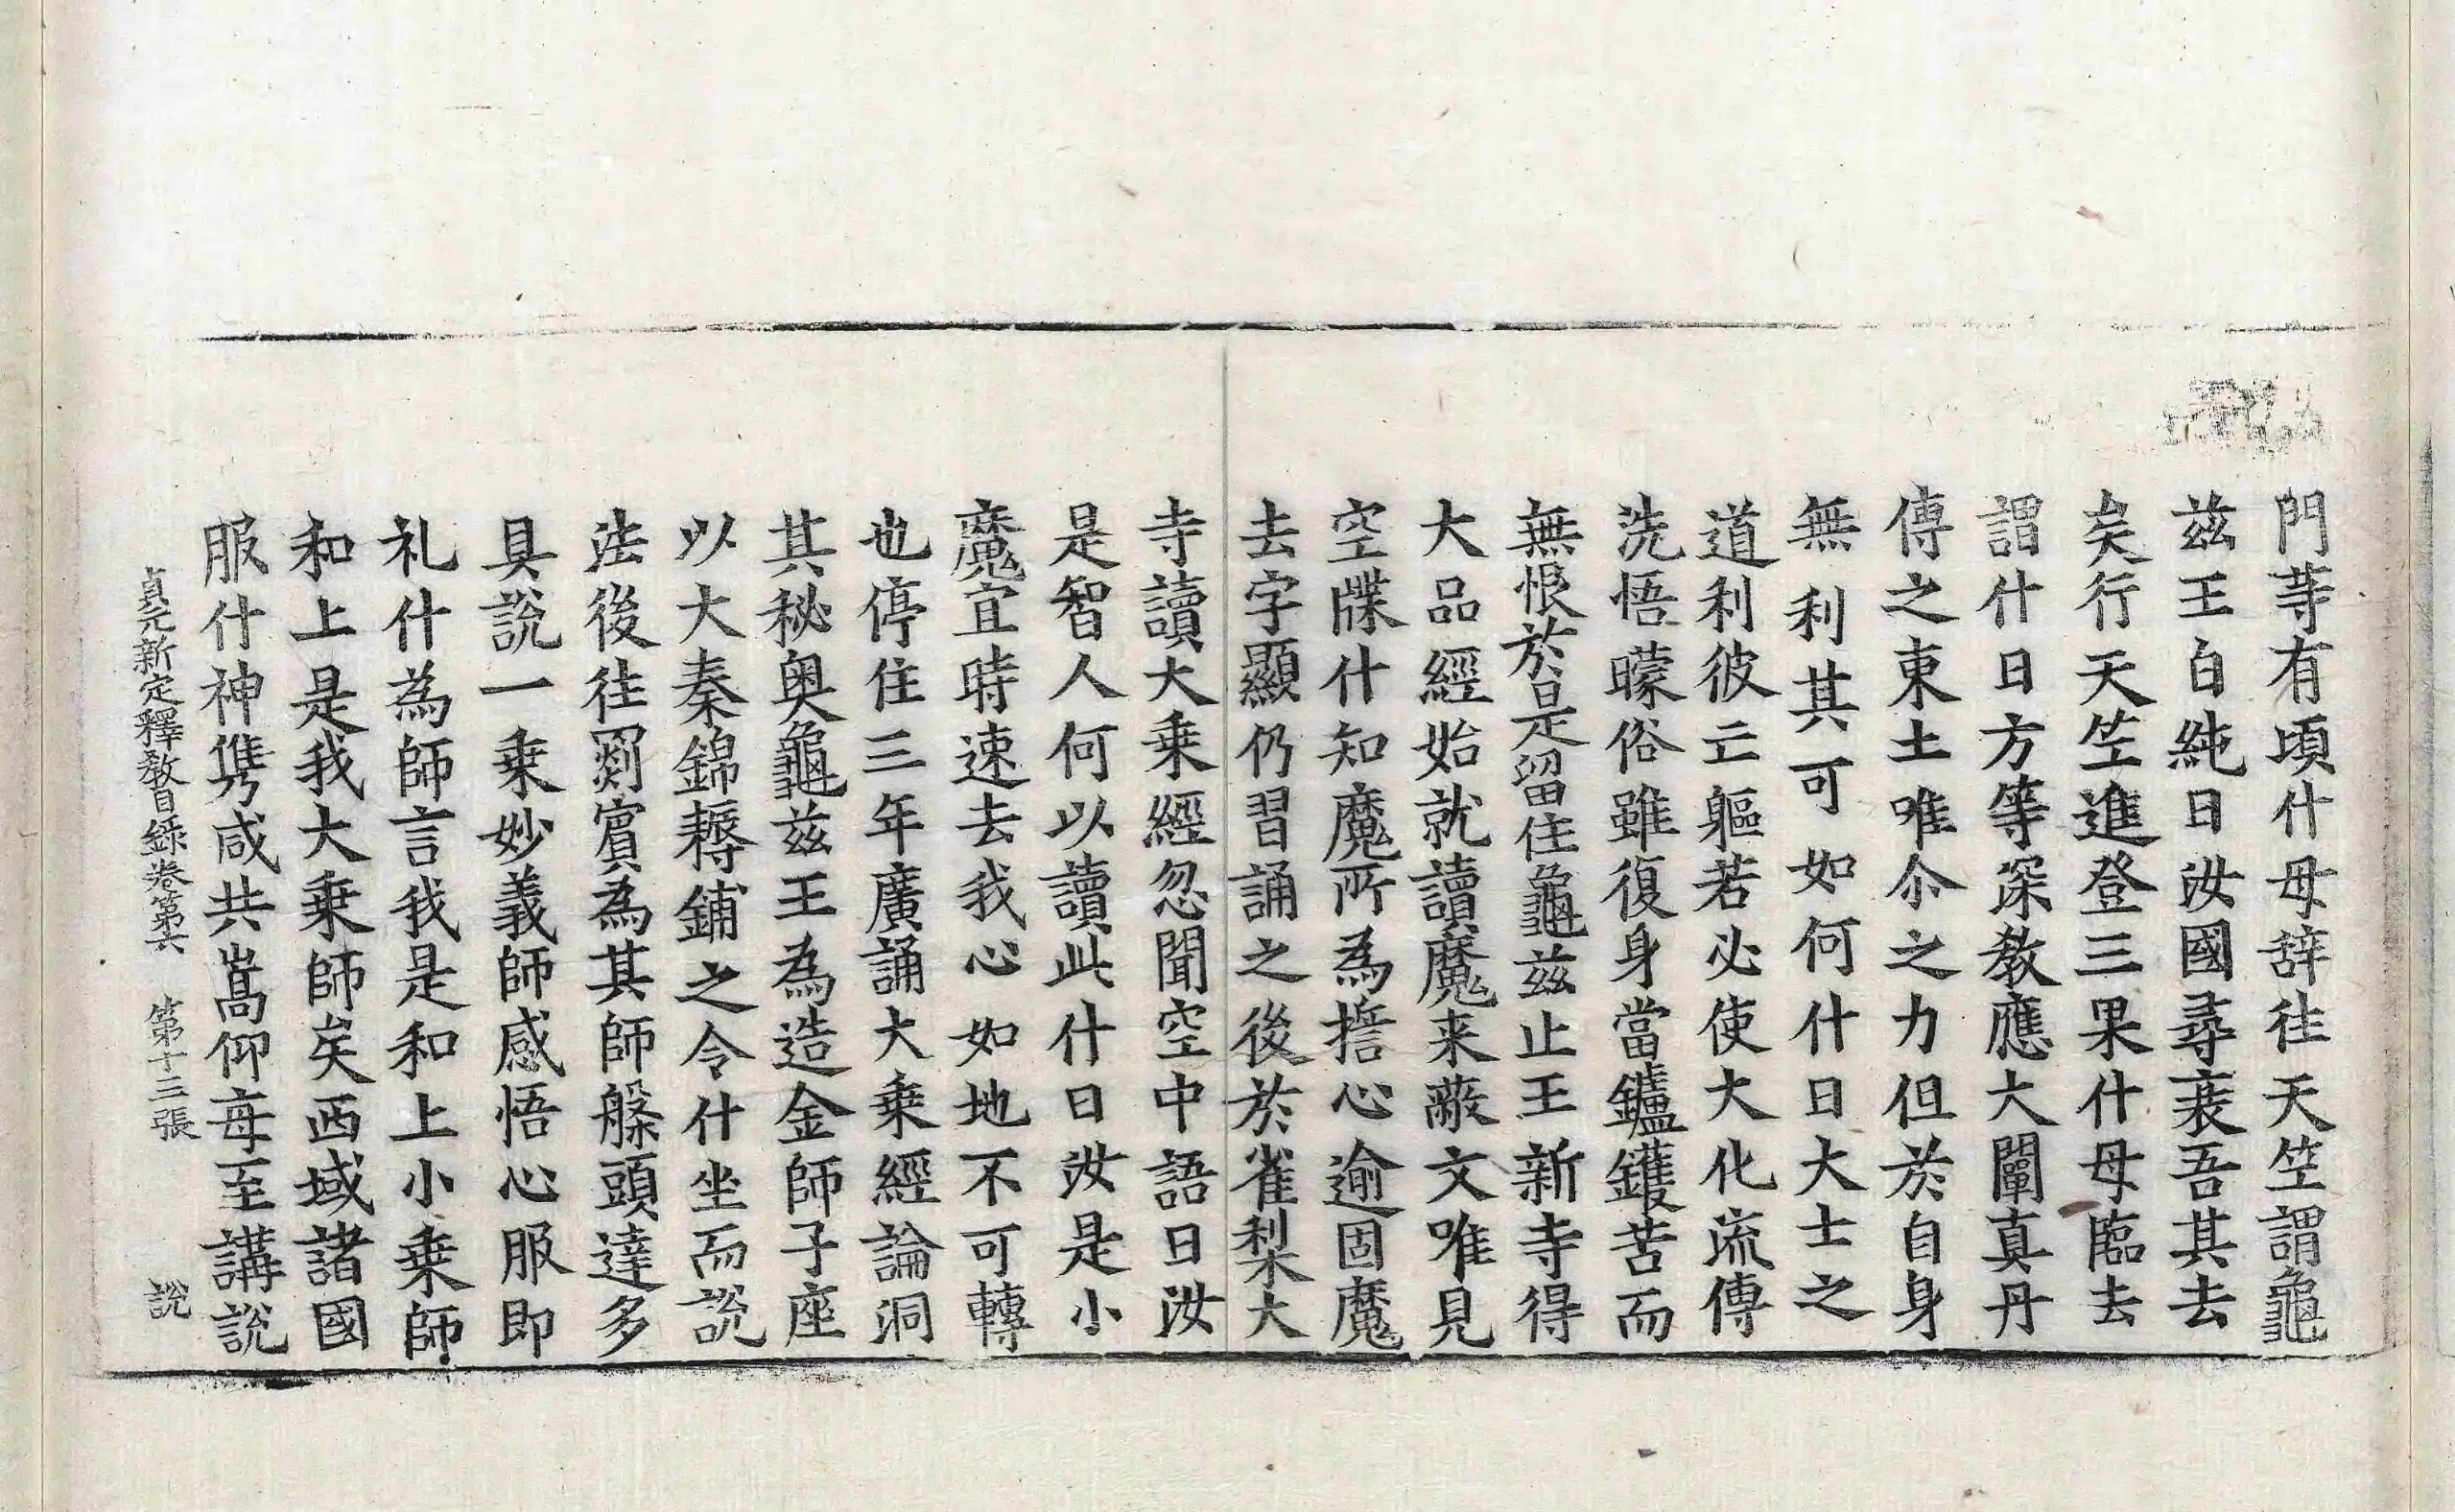 門䓁有頃什母辝徃天笁謂龜
兹王白純曰汝國尋衰吾其去
矣行天笁進登三果什母臨去
謂什曰方等深教應大闡真丹
傳之東土唯尒之力但於自身
無利其可如何什曰大士之
道利彼亡軀若必使大化流傳
洗悟矇俗雖復身當鑪鑊苦而
無恨於是留住龜兹止王新寺得
大品經始就讀魔来蔽文唯見
空牒什知魔所為誓心逾固魔
去字顯仍習誦之後於雀梨大
寺讀大乗經忽聞空中語曰汝
是智人何以讀此什曰汝是小
魔宜時速去我心如地不可轉
也停住三年廣誦大乗經論洞
其秘奥龜兹王為造金師子座
以大秦錦褥鋪之令什坐而說
法後徃罽賓為其師槃頭達多
具說一乗妙義師感悟心服即
礼什為師言我是和上小乗師
和上是我大乗師矣西域諸國
服什神雋咸共嵩仰每至講說
貞元新定釋教目錄卷第六 第十三張 說